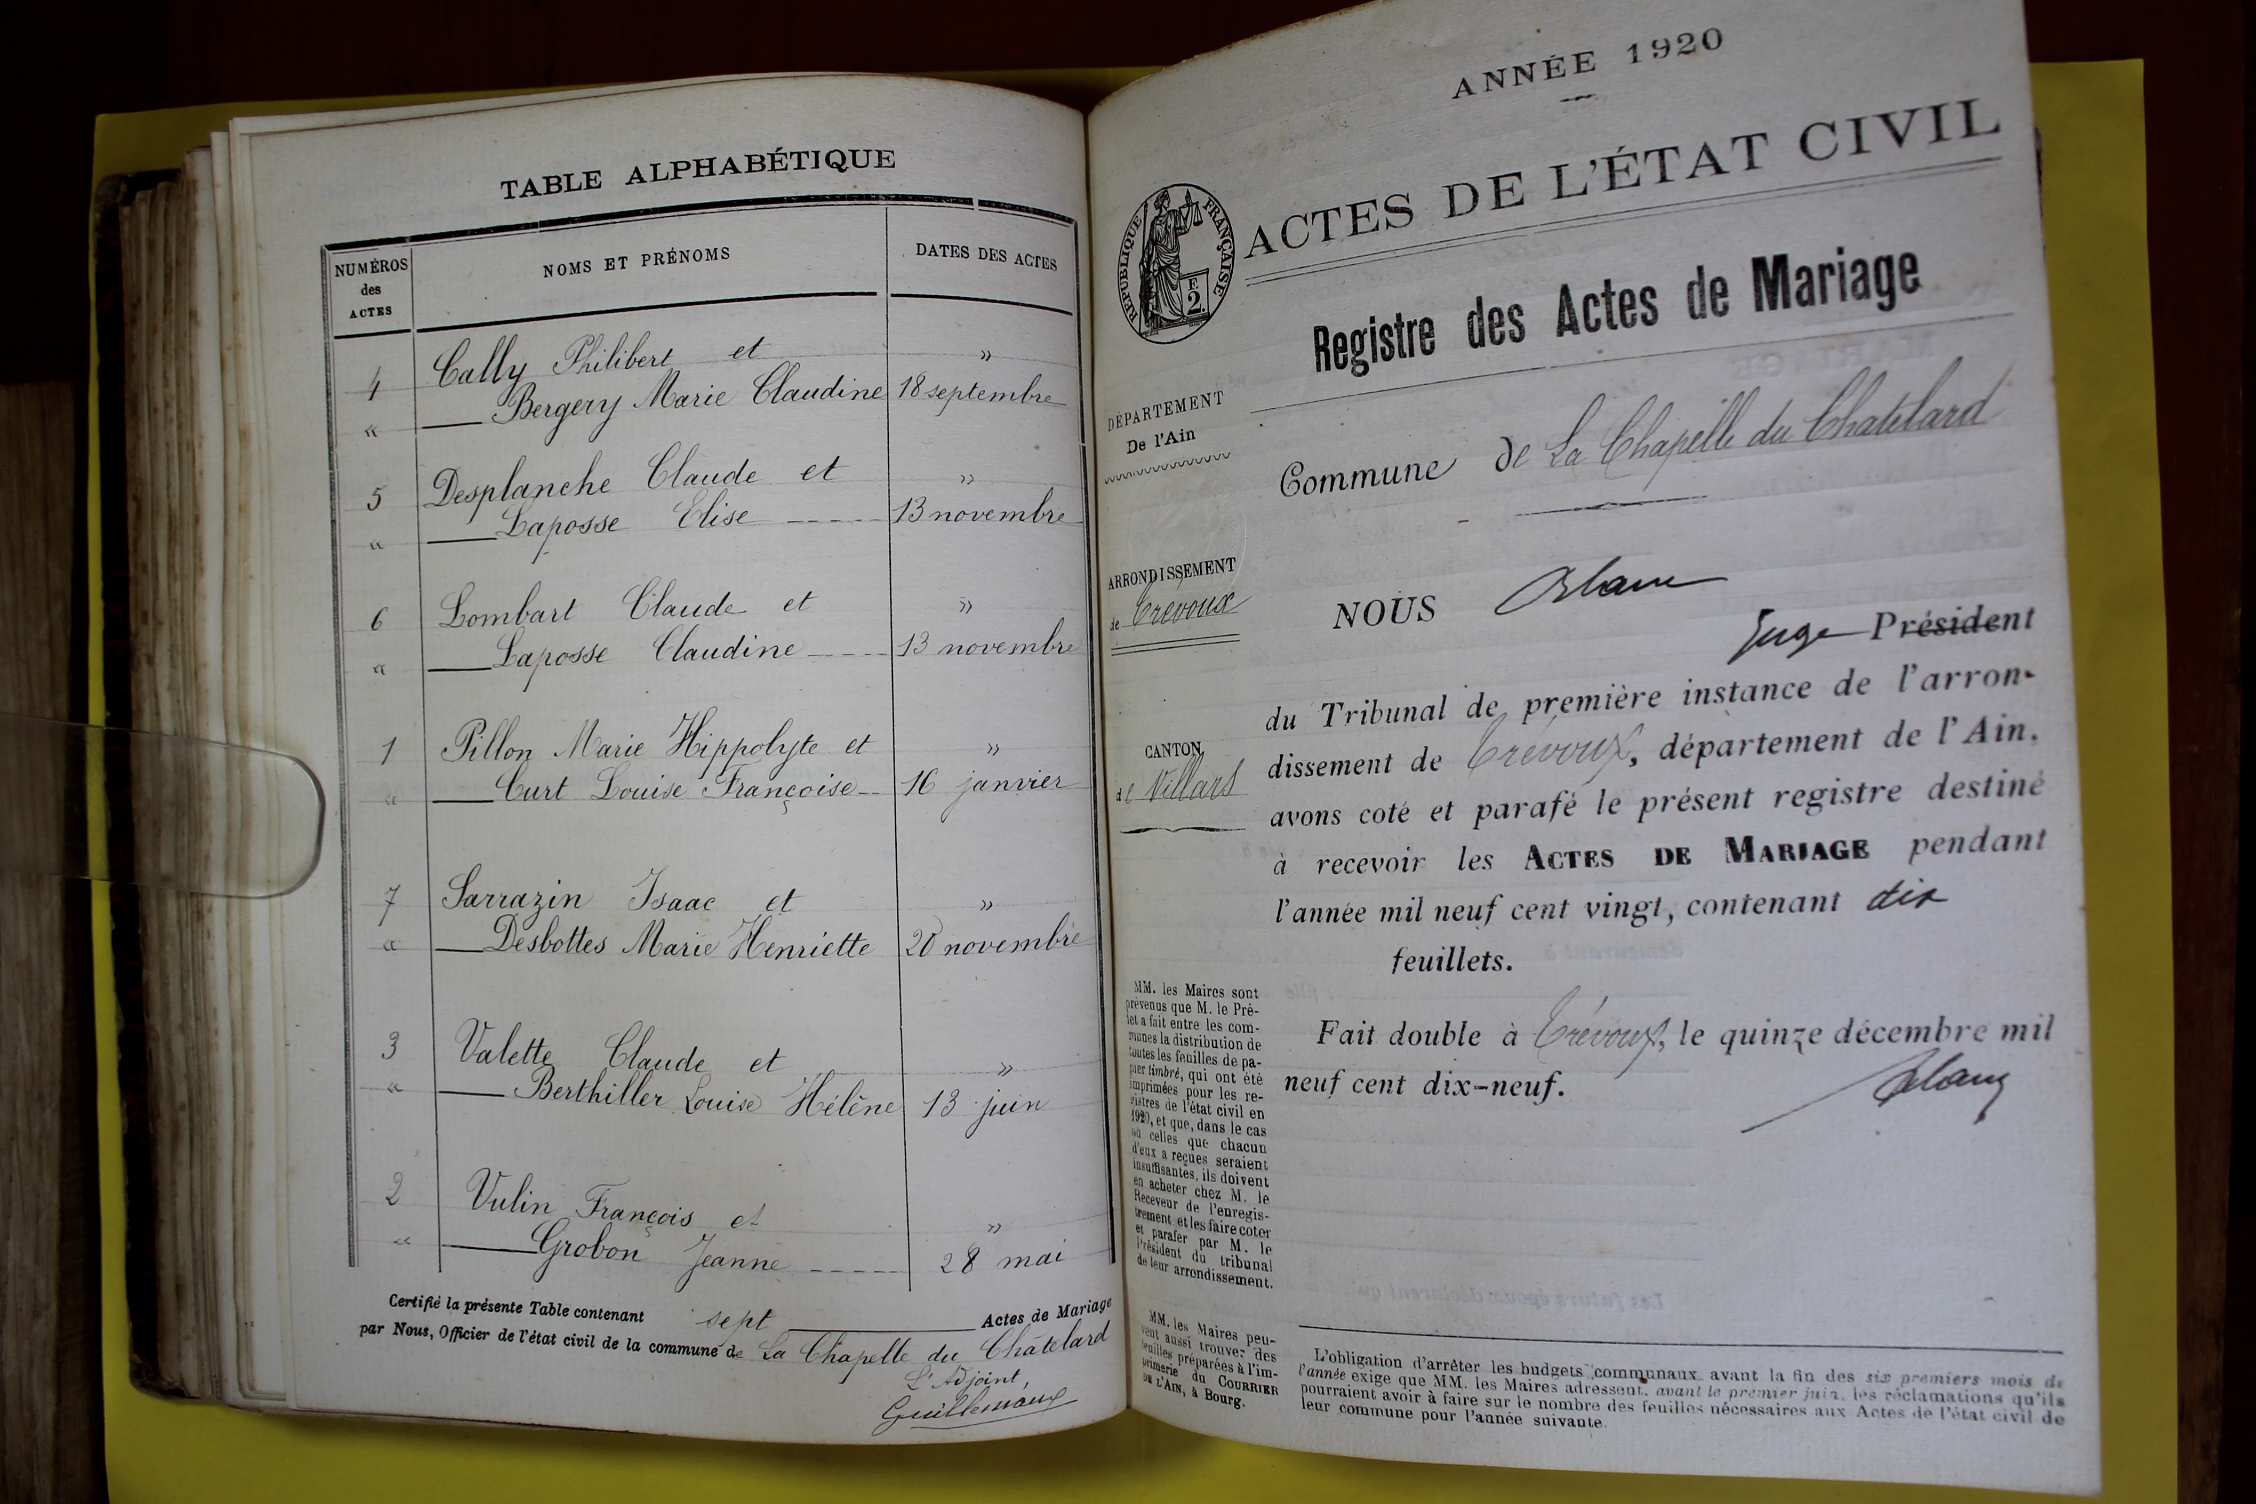 TABLE ALPHABÉTIQUE
NUMÉROS
des
ACTES
NOMS ET PRÉNOMS
DATES DES ACTES
4 Cally Philibert et »
« Bergery Marie Claudine 18 septembre
5 Desplanche Claude et »
« Laposse Elise 13 novembre
6 Lombart Claude et »
« Laposse Claudine 13 novembre
1 Pillon Marie Hippolyte et »
« Curt Louise Françoise 16 janvier
7 Sarrazin Isaac et »
« Desbottes Marie Henriette 20 novembre
3 Valette Claude et »
« Berthiller Louise Hélène 13 juin
2 Vulin François et »
« Grobon Jeanne 28 mai
Certifié la présente Table contenant sept Actes de Mariage
par Nous, Officier de l'état civil de la commune de La Chapelle du Châtelard
L'Adjoint,
Guillemaux
ANNÉE 1920
ACTES DE L'ÉTAT CIVIL
RÉPUBLIQUE FRANÇAISE
F.
2.
Registre des Actes de Mariage
DÉPARTEMENT
De l'Ain
Commune de La Chapelle du Chatelard
ARRONDISSEMENT
de Trévoux
NOUS
Juge Président
du Tribunal de première instance de l'arron-
dissement de Trévoux, département de l'Ain,
CANTON
de Villars
avons coté et parafé le présent registre destiné
à recevoir les ACTES DE MARIAGE pendant
l'année mil neuf cent vingt, contenant dix
feuillets.
Fait double à Trévoux, le quinze décembre mil
neuf cent dix-neuf.
MM. les Maires sont
prévenus que M. le Pré-
fet a fait entre les com-
munes la distribution de
toutes les feuilles de pa-
pier timbré, qui ont été
imprimées pour les re-
gistres de l'état civil en
1920, et que, dans le cas
où celles que chacun
d'eux a reçues seraient
insuffisantes, ils doivent
en acheter chez M. le
Receveur de l'enregis-
trement et les faire coter
et parafer par M. le
Président du tribunal
de leur arrondissement.
MM. les Maires peu-
vent aussi trouver des
feuilles préparées à l'im-
primerie du COURRIER
DE L'AIN, à Bourg.
L'obligation d'arrêter les budgets communaux avant la fin des six premiers mois de
l'année exige que MM. les Maires adressent, avant le premier juin, les réclamations qu'ils
pourraient avoir à faire sur le nombre des feuilles nécessaires aux Actes de l'état civil de
leur commune pour l'année suivante.